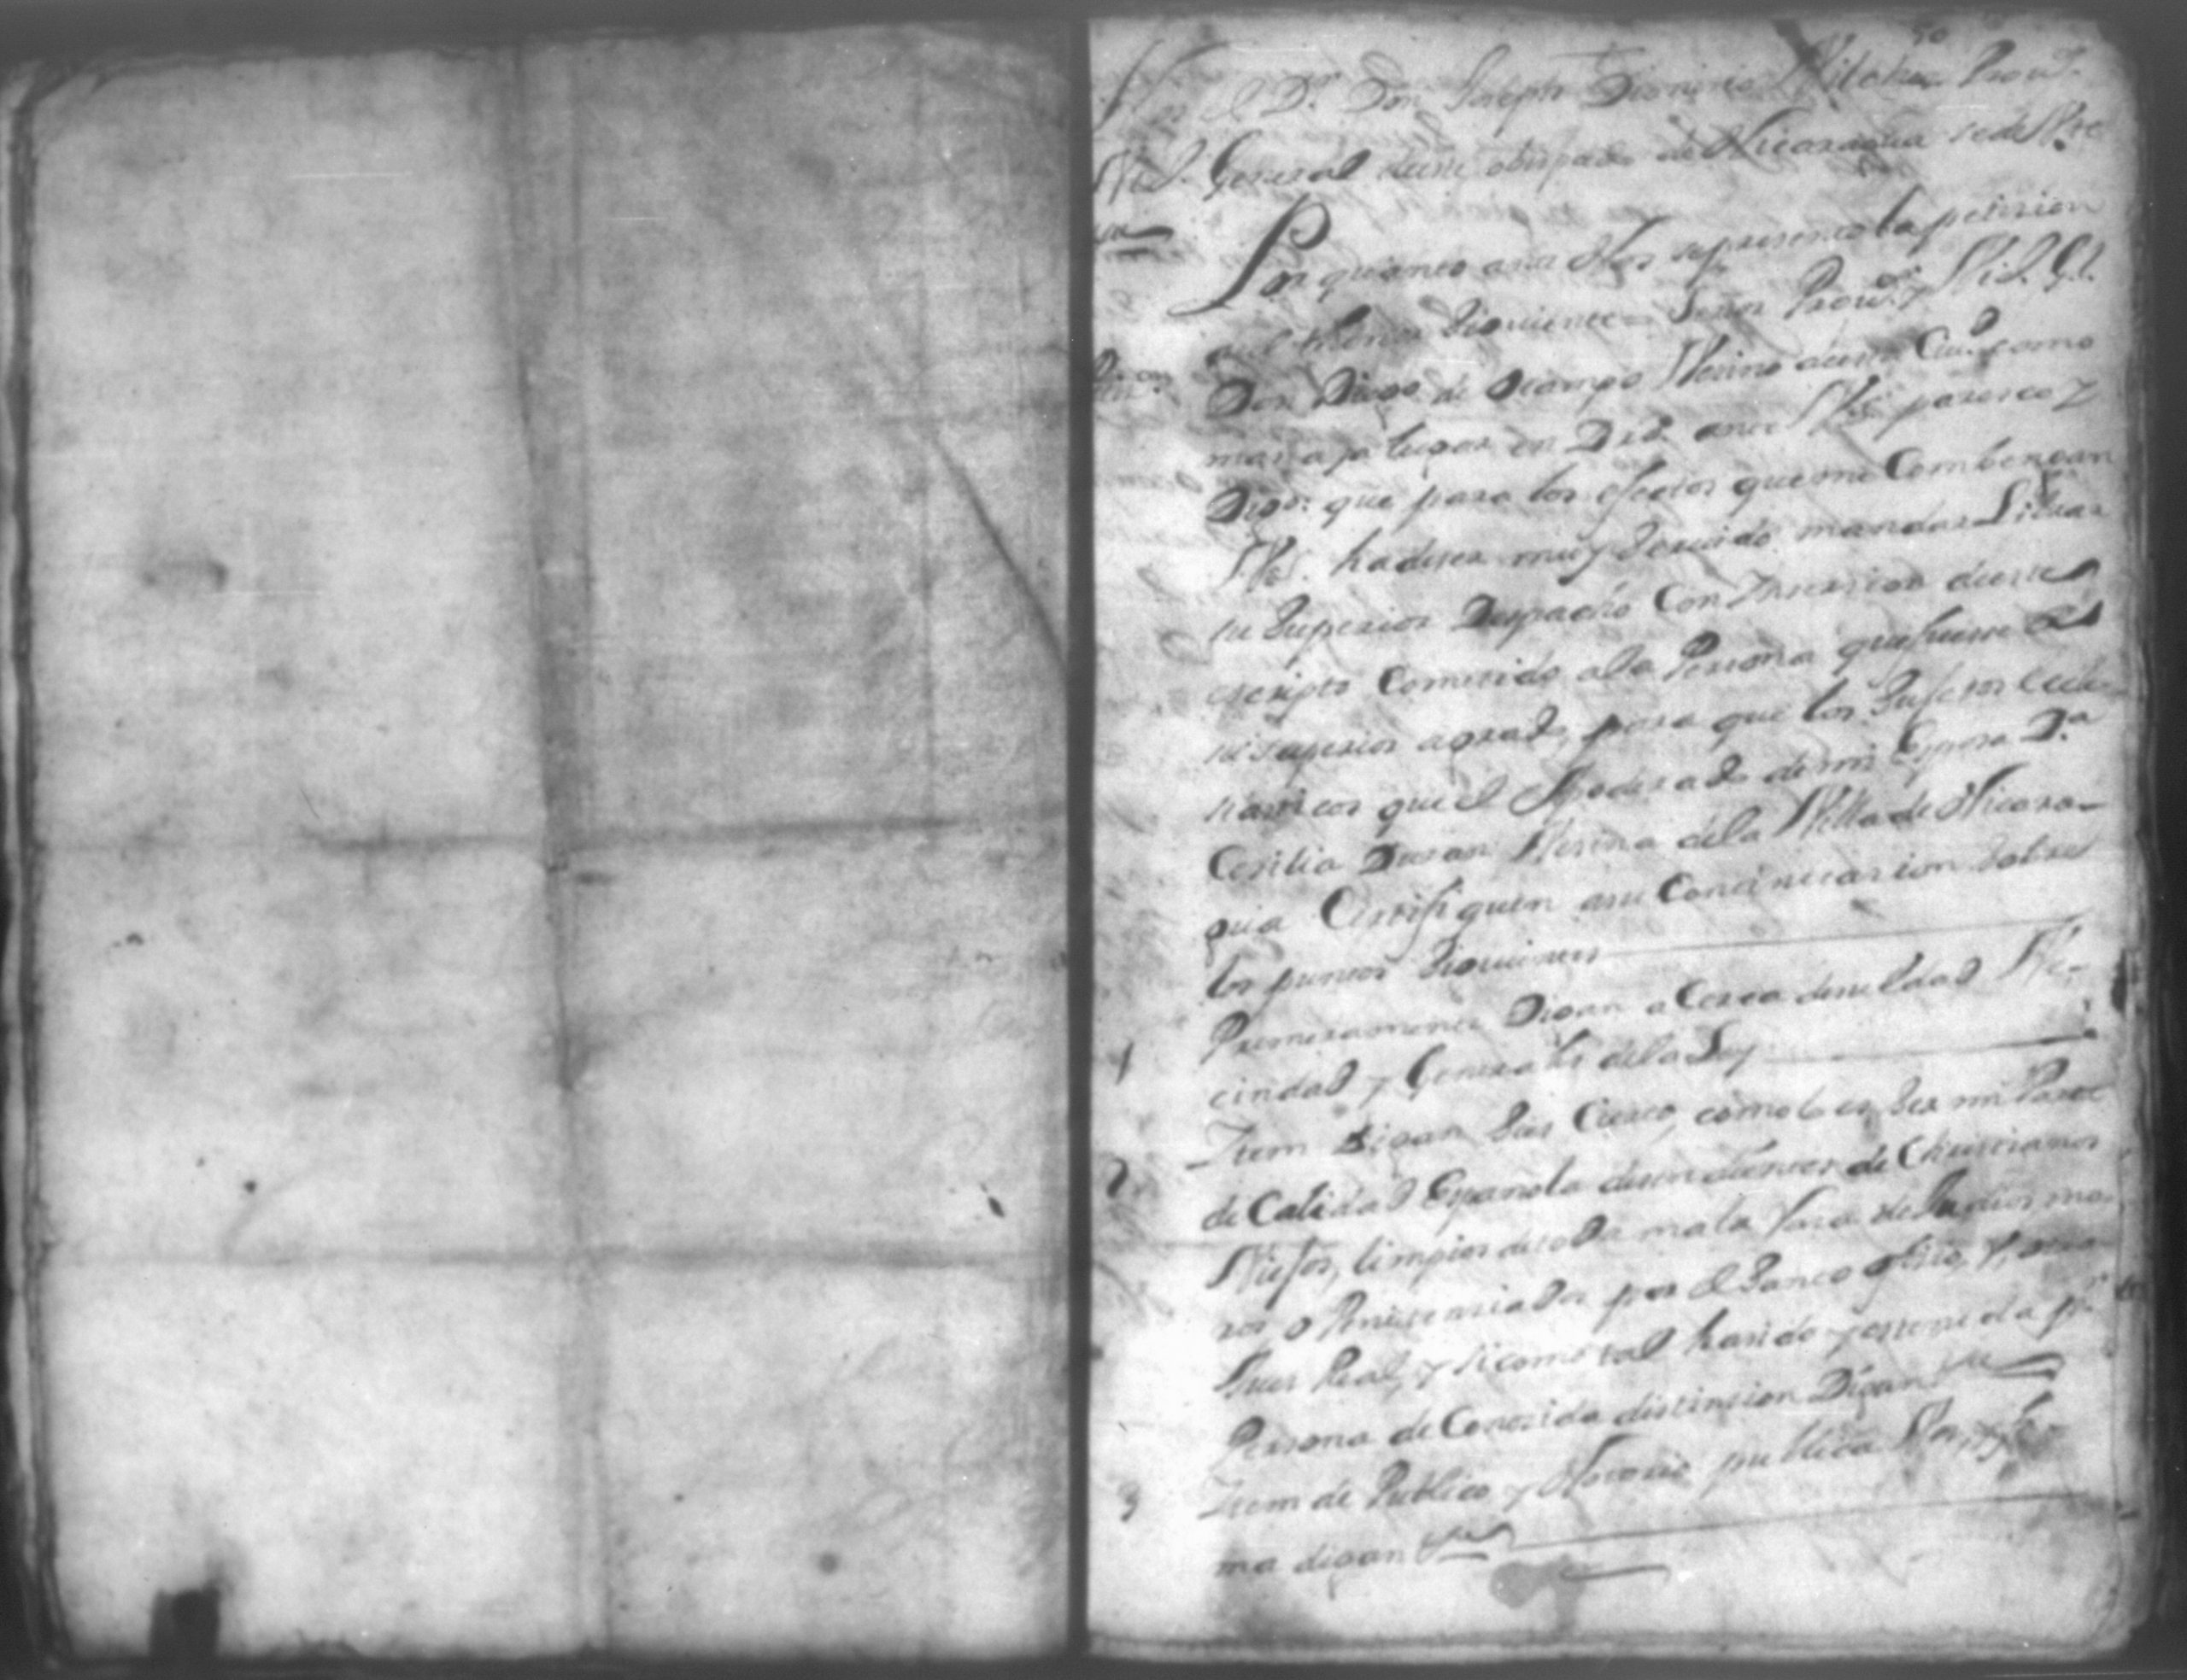 50
el D.r Don Joseph Dionicio Prov.r
General deste obispado de Nicaragua sede
Por quanto ante Nos se presento la petision
del thenor Siguiente = Señor Prov.r y Vic. Gl.
Don Diego de Ocampo Vecino desta Ciud. como
mas aya lugar en Dro. ante Vs. paresco y
Digo: que para los efectos que me Combengan
Vs. ha de ser muy Servido mandar Librar
su Superior Despacho Con Incersion deeste
escripto Cometido ala Persona que fuere de
su superior agrado, para que los Sujetos
que el Apoderado de mi Esposa D.a
Cesilia Duran Vesina dela Villa de Nicara-
gua Certifiquen asu Continuasion Sobre
los puntos Siguientes
1 Primeramente Digan aCerca de su Edad Ve-
cindad y Generales dela Ley
2 Item Digan Seis Cierto, como lo es Ser mi Parte
de Calidad Española desendientes de Christianos
Viejos, limpios de toda mala Rasa de Judios mo-
ros, o Penitensiados por el Santo ofisio, V. otro
Juez Real, y si como tal ha sido y es tenida p.r
Persona de Conosida distinsion Digan
3 Item de Publico y Notorio publica Vos, y fa-
ma digan